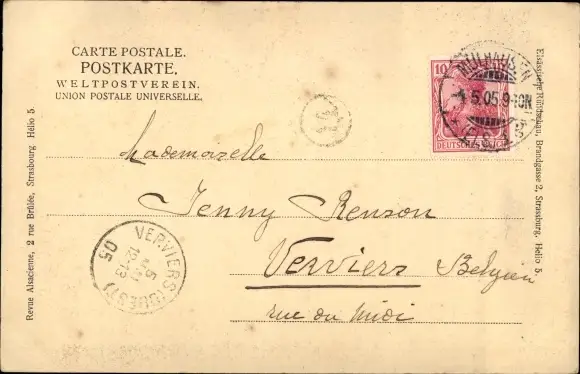 CARTE POSTALE.
POSTKARTE.
WELTPOSTVEREIN.
UNION POSTALE UNIVERSELLE.
10
DEUTSCHES REICH
MÜLHAUSEN
5.05.9-10N
Mademoiselle
Jenny Renson
Verviers Belgien
rue du Midi
VERVIERS (OUEST)
5
12-13
05
Revue Alsacienne, 2 rue Brûlée, Strasbourg Hélio 5
Elsässische Rundschau, Brandgasse 2, Strassburg. Helio 5.